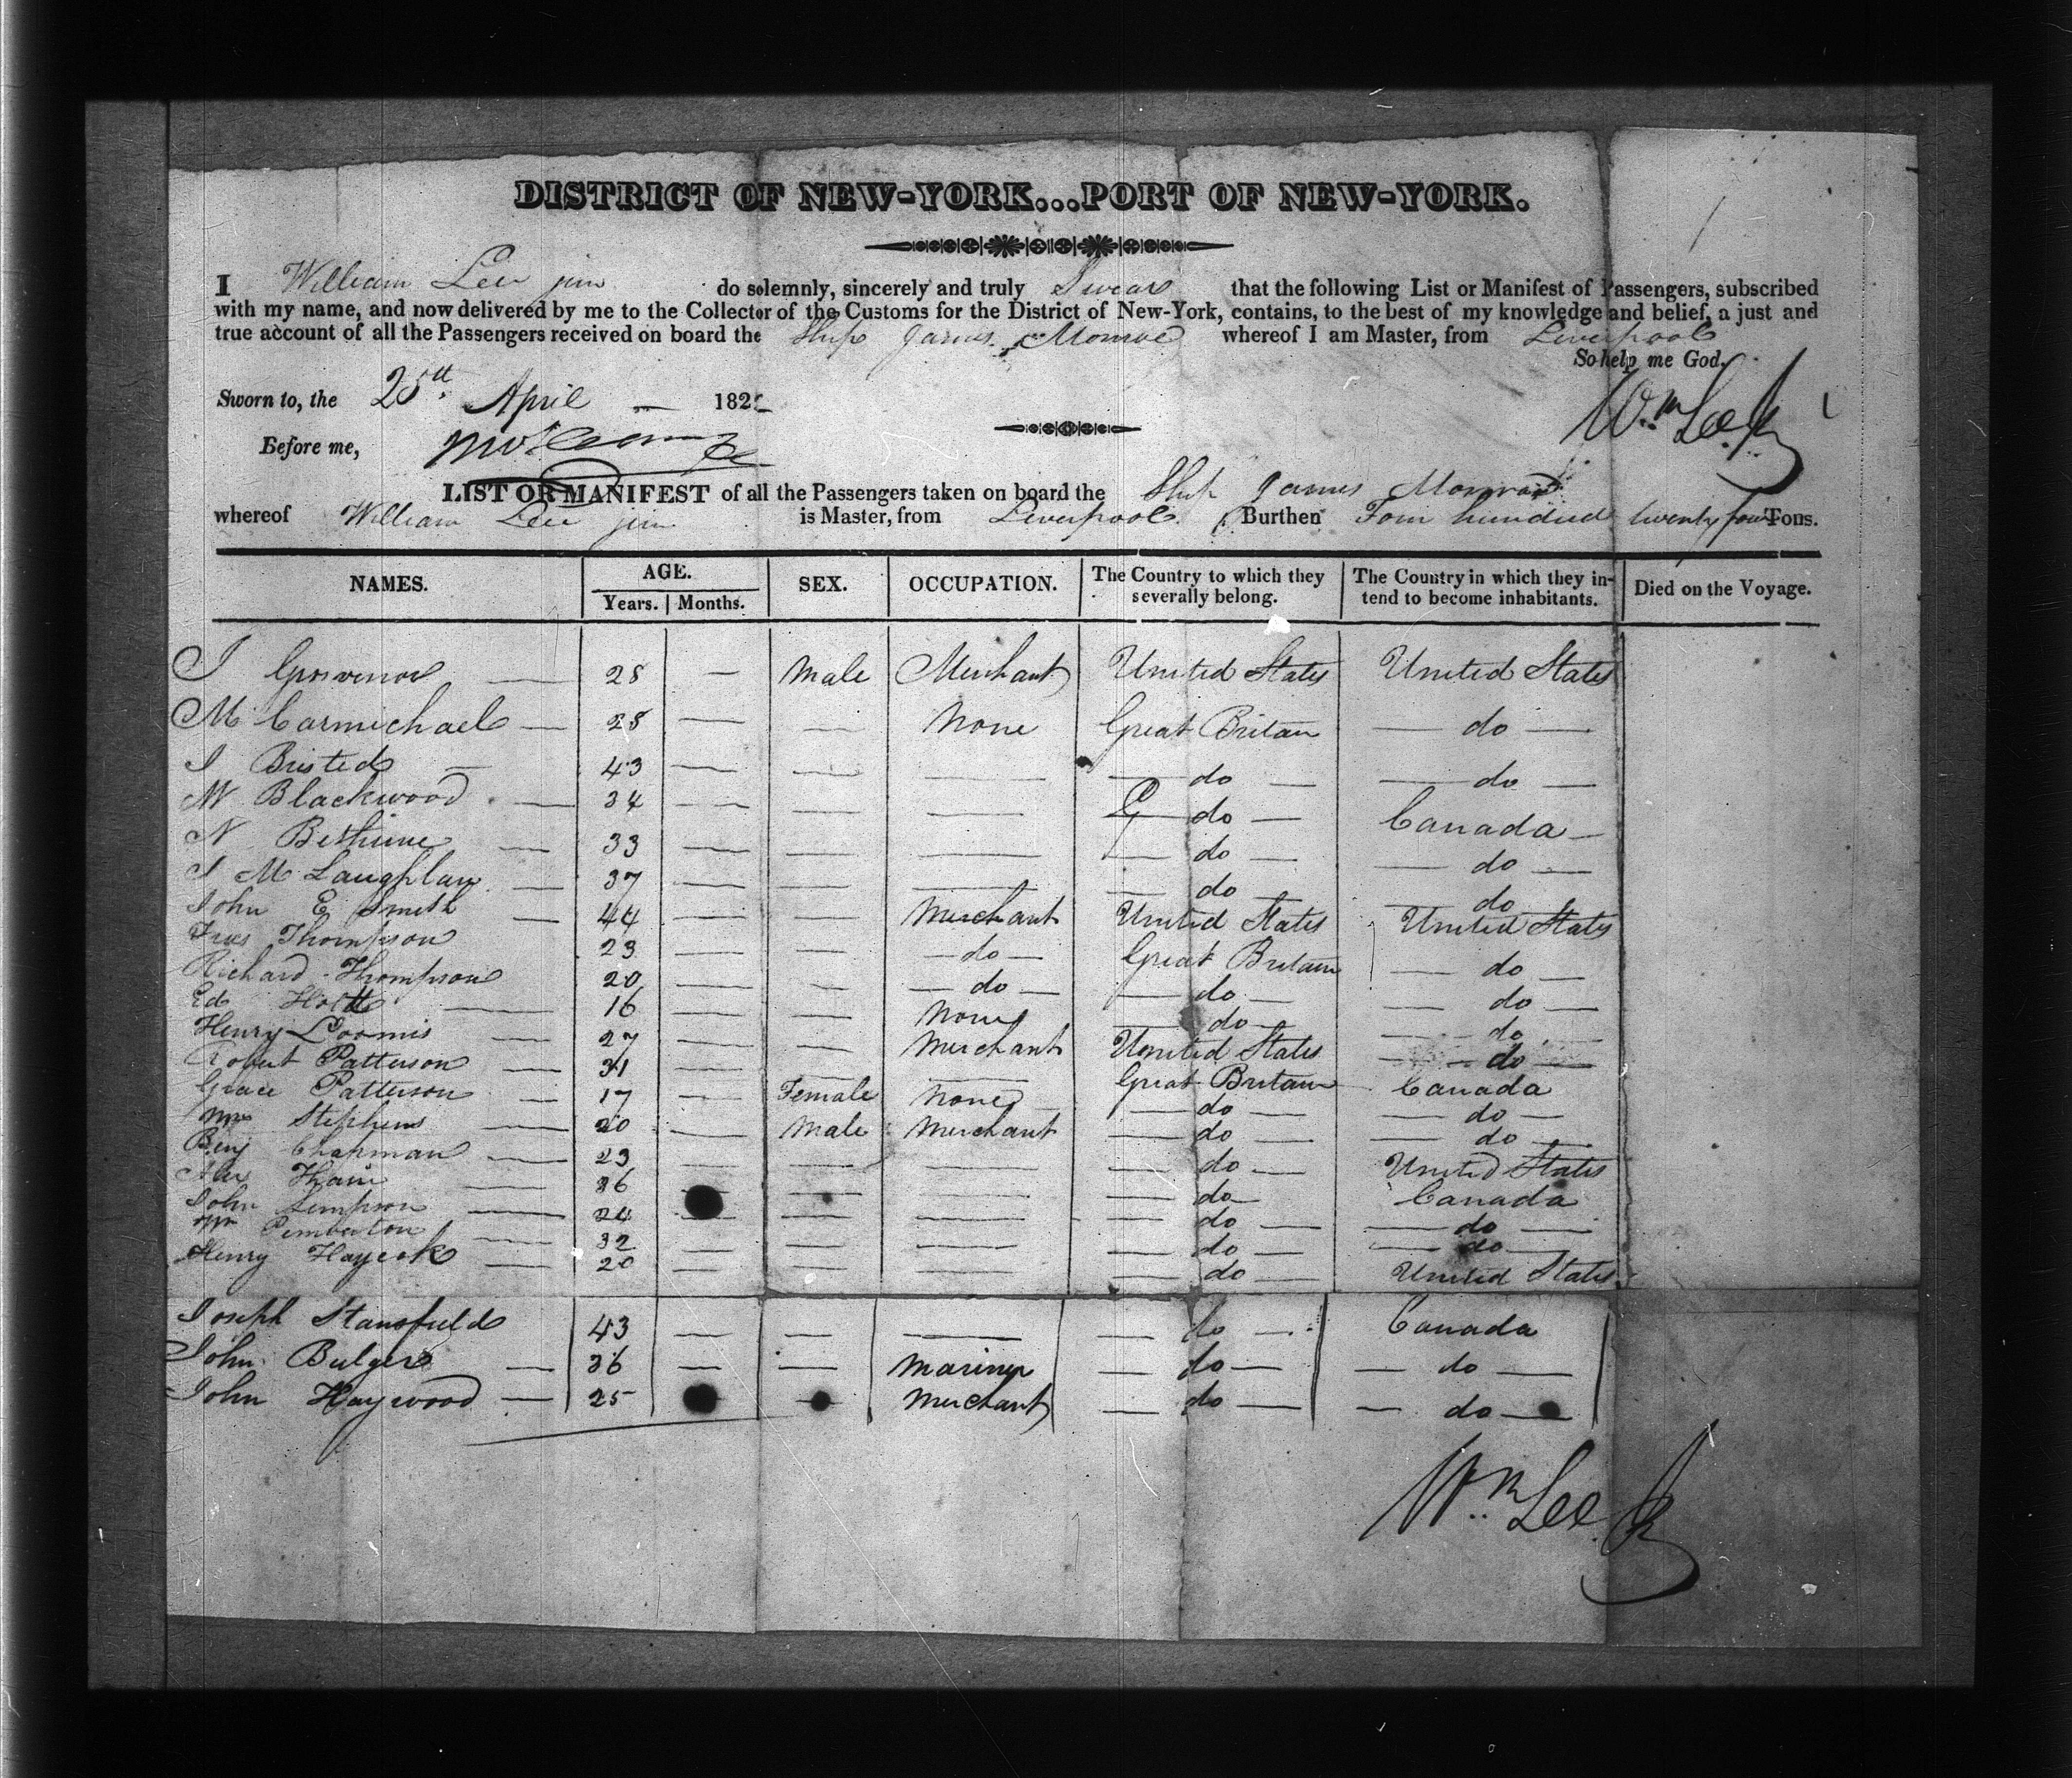 DISTRICT OF NEW-YORK...PORT OF NEW-YORK.
I William Lee jun do solemnly, sincerely and truly Swear that the following List or Manifest of Passengers, subscribed
with my name, and now delivered by me to the Collector of the Customs for the District of New-York, contains, to the best of my knowledge and belief, a just and
true account of all the Passengers received on board the Ship James Monroe whereof I am Master, from Liverpool
So help me God.
Sworn to, the 25th April 182
Wm Lee Jr
Before me,
LIST OR MANIFEST of all the Passengers taken on board the Ship James Monroe
whereof William Lee jun is Master, from Liverpool Burthen Four hundred twenty four Tons.
NAMES. AGE. Years. Months. SEX. OCCUPATION. The Country to which they severally belong. The Country in which they intend to become inhabitants. Died on the Voyage.
I Grosvenor — 28 — Male Merchant United States United States
M Carmichael — 28 — — None Great Britain — do —
I Bristed — 43 — — — — do — — do —
W Blackwood — 34 — — — — do — Canada —
N Bethune — 33 — — — — do — — do —
I M Laughlan — 37 — — — — do — — do —
John E Smith — 44 — — Merchant United States United States
Thompson 23 — — — do — Great Britain — do —
Richard Thompson 20 — — — do — — do — — do —
Ed — 16 — — None — do — — do —
Henry Loomis — 27 — — Merchant United States — do —
Robert Patterson — 31 — — — Great Britain Canada
Grace Patterson — 17 — Female None — do — — do —
Stephens — 20 — Male Merchant — do — — do —
Benj Chapman — 23 — — — — do — United States
Alex Thain — 26 — — — do — Canada
John Simpson — 24 — — — — do — — do —
Wm Pemberton — 32 — — — — do — — do —
Henry Haycok — 20 — — — — do — United States
Joseph Stansfield 43 — — — — do — Canada
John Bulger — 36 — — Mariner — do — — do —
John Haywood — 25 — Merchant — do — — do —
Wm Lee Jr